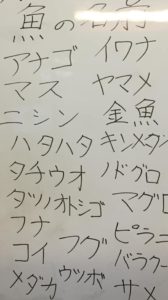 魚の名前
アナゴ イワナ
マス ヤマメ
ニシン 金魚
ハタハタ キンメダイ
タチウオ ノドグロ
タツノオトシゴ マグロ
フナ ピラニ
コイ フグ バラクー
メダカ ウツボ サメ